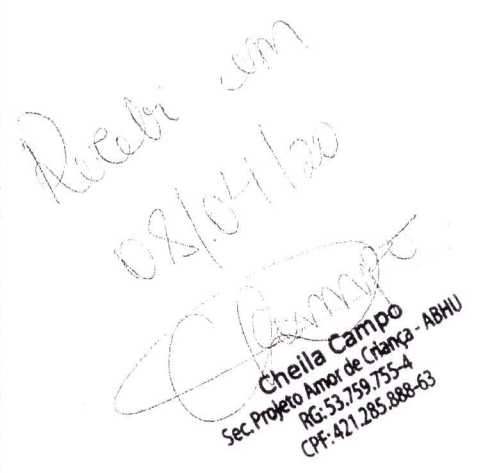 Recebi em
08/04/20
CCampo
Cheila Campo
Sec. Projeto Amor de Criança - ABHU
RG: 53.759.755-4
CPF: 421.285.888-63